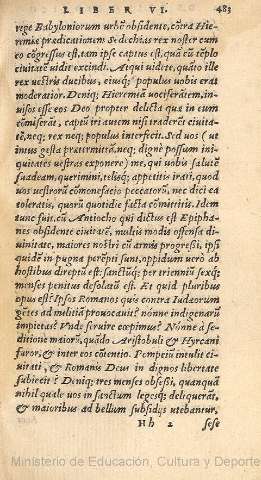 LIBER VI. 483
rege Babyloniorum urbē obsidente, cōtra Hie-
remiæ prædicationem Sedechias rex noster cum
eo cōgressus est, tam ipse captus est, quā cū tēplo
ciuitatē uidit excindi. Atqui uidete, quāto ille
rex uestris ducibus, eiusq; populus uobis erat
moderatior. Deniq; Hieremiā uociferātem, in-
uisos esse eos Deo propter delicta quæ in eum
cōmiserāt, captū iri autem nisi traderēt ciuita-
tē, neq; rex neq; populus interficit. Sed uos (ut
intus gesta prætermittā, neq; digne possum ini-
quitates uestras exponere) me, qui uobis salutē
suadeam, querimini, telisq; appetitis irati, quod
uos uestrorū cōmonefacio peccatorū, nec dici ea
toleratis, quorū quotidie facta cōmittitis. Idem
tunc fuit, cū Antiocho qui dictus est Epipha-
nes obsidente ciuitatē, multis modis offensa di-
uinitate, maiores nostri cū armis progressi, ipsi
quidē in pugna perēpti sunt, oppidum uerò ab
hostibus direptū est: sanctūq; per trienniū sexq;
menses penitus desolatū est. Et quid pluribus
opus est? Ipsos Romanos quis contra Iudæorum
gētes ad militiā prouocauit? nōnne indigenarū
impietas? Vnde seruire cœpimus? Nōnne à se-
ditione maiorū, quādo Aristobuli & Hyrcani
furor, & inter eos cōtentio. Pompeiū intulit ci-
uitati, & Romanis Deus in dignos libertate
subiecit? Deniq; tres menses obsessi, quanquā
nihil quale uos in sanctum legesq; deliquerāt,
& maioribus ad bellum subsidijs utebantur,
Hh 2 sese
Ministerio de Educación, Cultura y Deporte